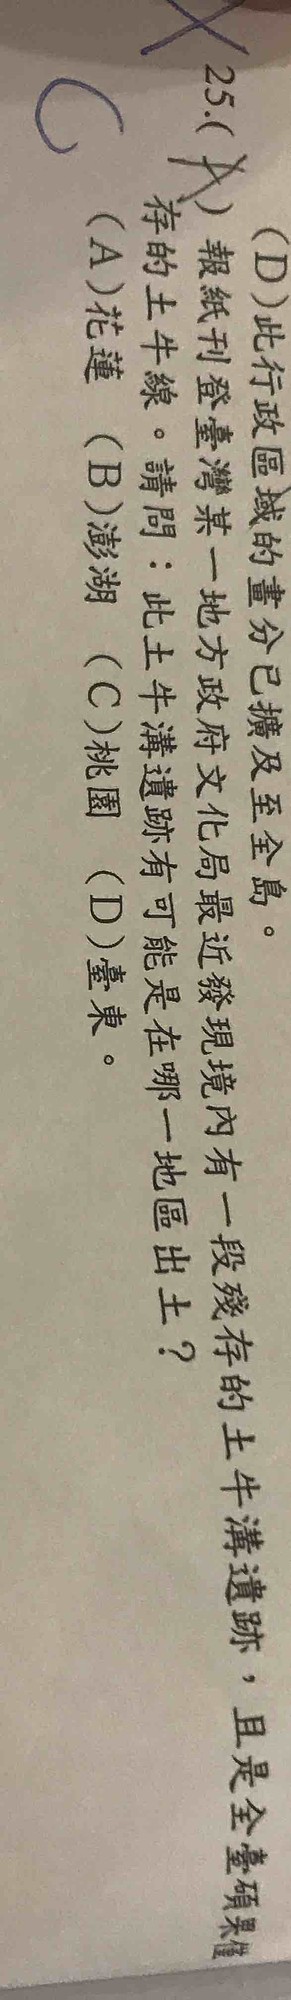 (D)此行政區域的畫分已擴及至全島。
25.(A) 報紙刊登臺灣某一地方政府文化局最近發現境內有一段殘存的土牛溝遺跡，且是全臺碩果僅
存的土牛線。請問：此土牛溝遺跡有可能是在哪一地區出土？
(A)花蓮 (B)澎湖 (C)桃園 (D)臺東。
C